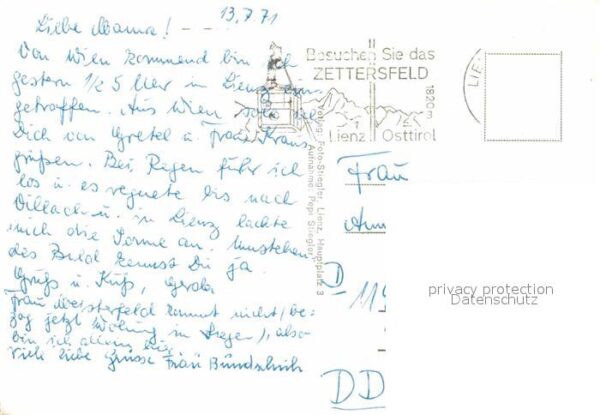 13.7.71
Liebe Mama!
Von Wien kommend bin ich
gestern 1/2 5 Uhr in Lienz ein
getroffen. Aus Wien soll ich
Dich von Gretel u. Frau Kraus
grüßen. Bei Regen fuhr ich
los u. es regnete bis nach
Villach u. in Lienz lachte
mich die Sonne an. Umstehen
des Bild kennst Du ja.
Gruß u. Kuß, Gerda
Frau Meisterfeld kommt nicht (be
zog jetzt Wohnung in), also
bin ich allein hier
Viele liebe Grüsse Frau Bundschuh
Besuchen Sie das
ZETTERSFELD
1820 m
Lienz Osttirol
LIE
Verlag: Foto-Stiegler, Lienz, Hauptplatz 3
Aufnahme: Pepi Stiegler
Frau
D
-11
DD
privacy protection
Datenschutz